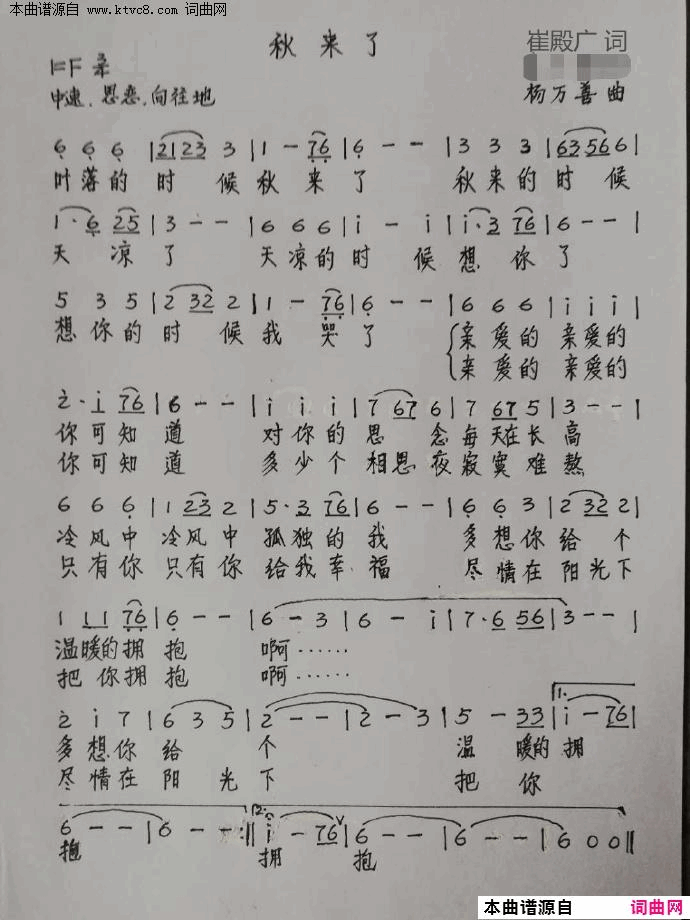 本曲谱源自
www.ktvc8.com 词曲网
秋来了
崔殿广 词
1=F 3/4
中速、思恋、向往地
杨万善 曲
6 6 6 | 2123 3 | 1 - 76 | 6 - - | 3 3 3 | 63566 |
叶落的时候秋来了 秋来的时候
1· 6 25 | 3 - - | 6 6 6 | i - i | i·3 76 | 6 - - |
天凉了 天凉的时候想你了
5 3 5 | 2 32 2 | 1 - 76 | 6 - - | 6 6 6 | i i i |
想你的时候我哭了 亲爱的 亲爱的
亲爱的 亲爱的
2· i 76 | 6 - - | i i i | 7 67 6 | 7 67 5 | 3 - - |
你可知道 对你的思念每天在长高
你可知道 多少个相思夜寂寞难熬
6 6 6 | 1 23 2 | 5·3 76 | 6 - - | 6 6 3 | 2 32 2 |
冷风中 冷风中 孤独的我 多想你给个
只有你 只有你 给我幸福 尽情在阳光下
1 11 76 | 6 - - | 6 - 3 | 6 - i | 7·6 56 | 3 - - |
温暖的拥抱 啊……
把你拥抱 啊……
2 i 7 | 6 3 5 | 2 - - | 2 - 3 | 5 - 33 | 1. i - 76 |
多想你给个 温暖的拥
尽情在阳光下 把你
6 - - | 6 - - :‖ 2. i - 76 V | 6 - - | 6 - - | 6 0 0 ‖
抱 拥 抱
本曲谱源自 词曲网